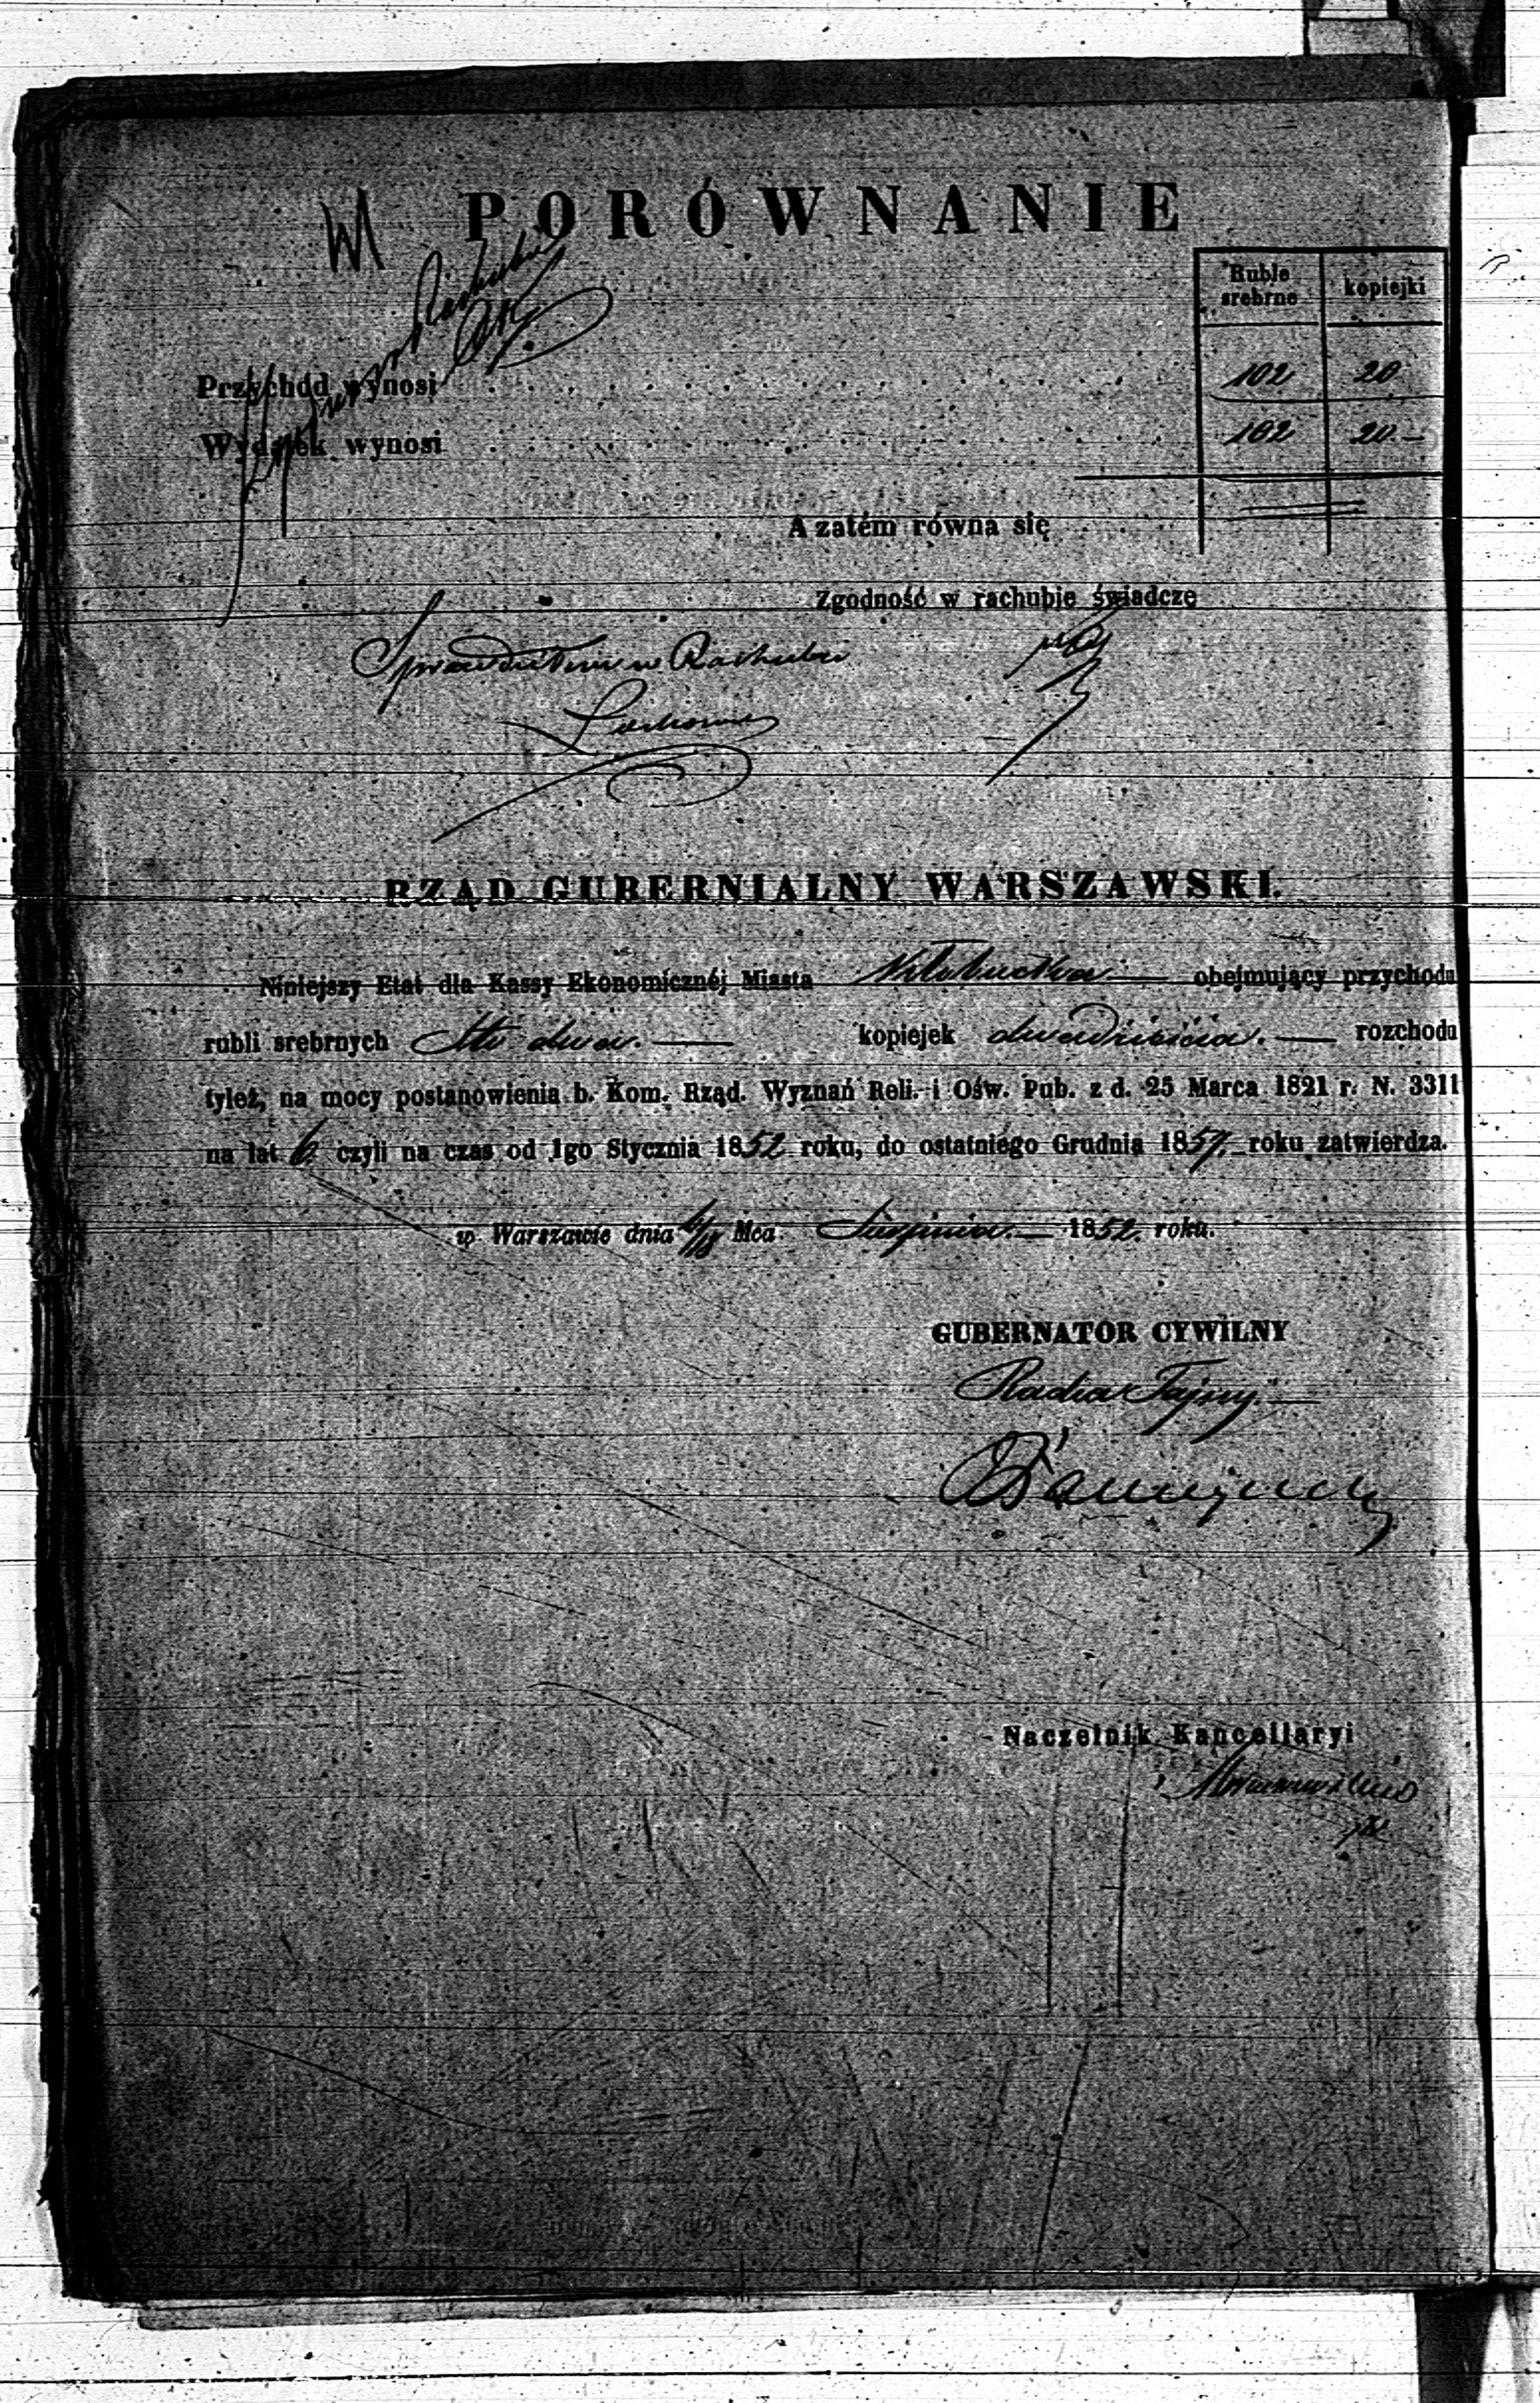 PORÓWNANIE
Ruble srebrne kopiejki
Przychód wynosi 102 20
Wydatek wynosi 102 20.—
A zatém równa się
Zgodność w rachubie świadczę
w Rachubie
RZĄD GUBERNIALNY WARSZAWSKI.
Niniejszy Etat dla Kassy Ekonomicznéj Miasta Kłobucka — obejmujący przychodu
rubli srebrnych Sto dwa. — kopiejek dwadzieścia. — rozchodu
tyleż, na mocy postanowienia b. Kom. Rząd. Wyznań Reli. i Ośw. Pub. z d. 25 Marca 1821 r. N. 3311
na lat 6 czyli na czas od 1go Stycznia 1852 roku, do ostatniego Grudnia 1857. roku zatwierdza.
w Warszawie dnia 6/18 Mca Sierpnia. — 1852. roku.
GUBERNATOR CYWILNY
Radca Tajny. —
Naczelnik Kancellaryi